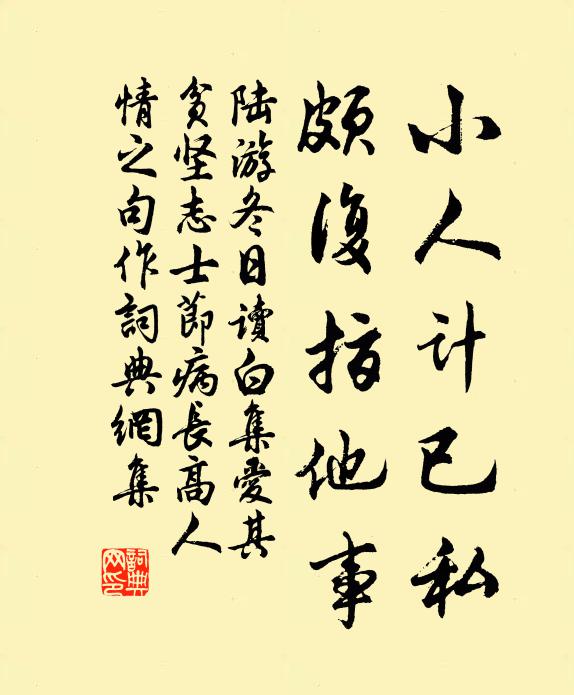 小人计已私
颇復指他事
陆游冬日读白集爱其
贫坚志士節病長高人
情之句作詞典網集
詞典网印